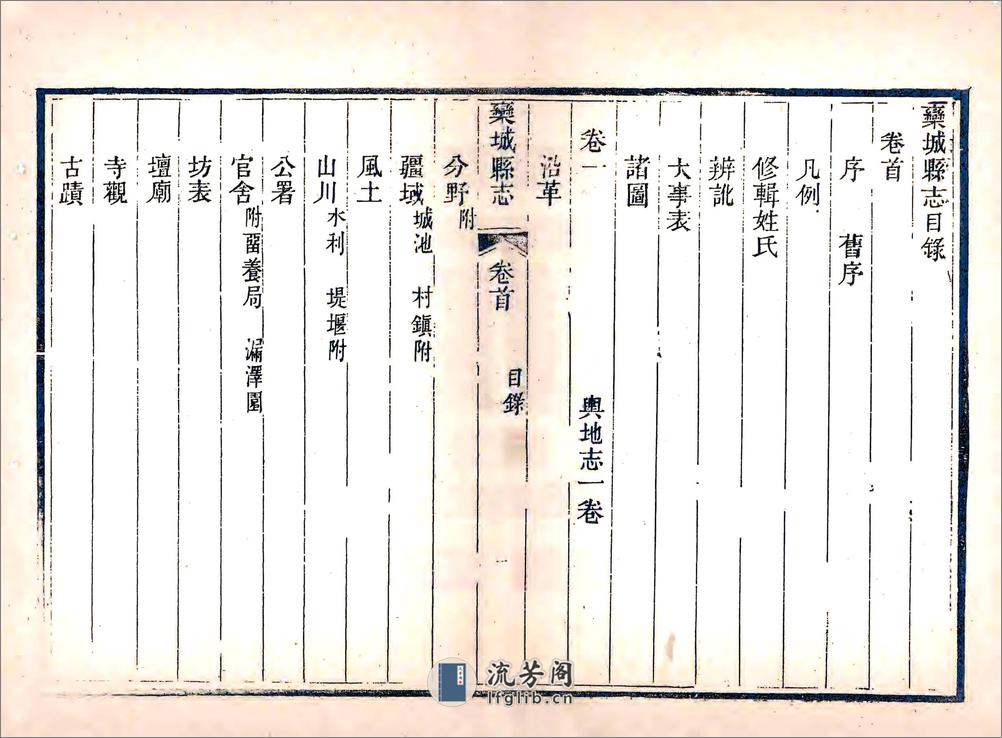 欒城縣志目録
卷首
序 舊序
凡例
修輯姓氏
辨訛
大事表
諸圖
卷一 輿地志一卷
沿革
欒城縣志 卷首 目錄 一
分野附
疆域城池 村鎮附
風土
山川水利 堤堰附
公署
官舍附畱養局 漏澤園
坊表
壇廟
寺觀
古蹟
流芳阁
lfglib.cn